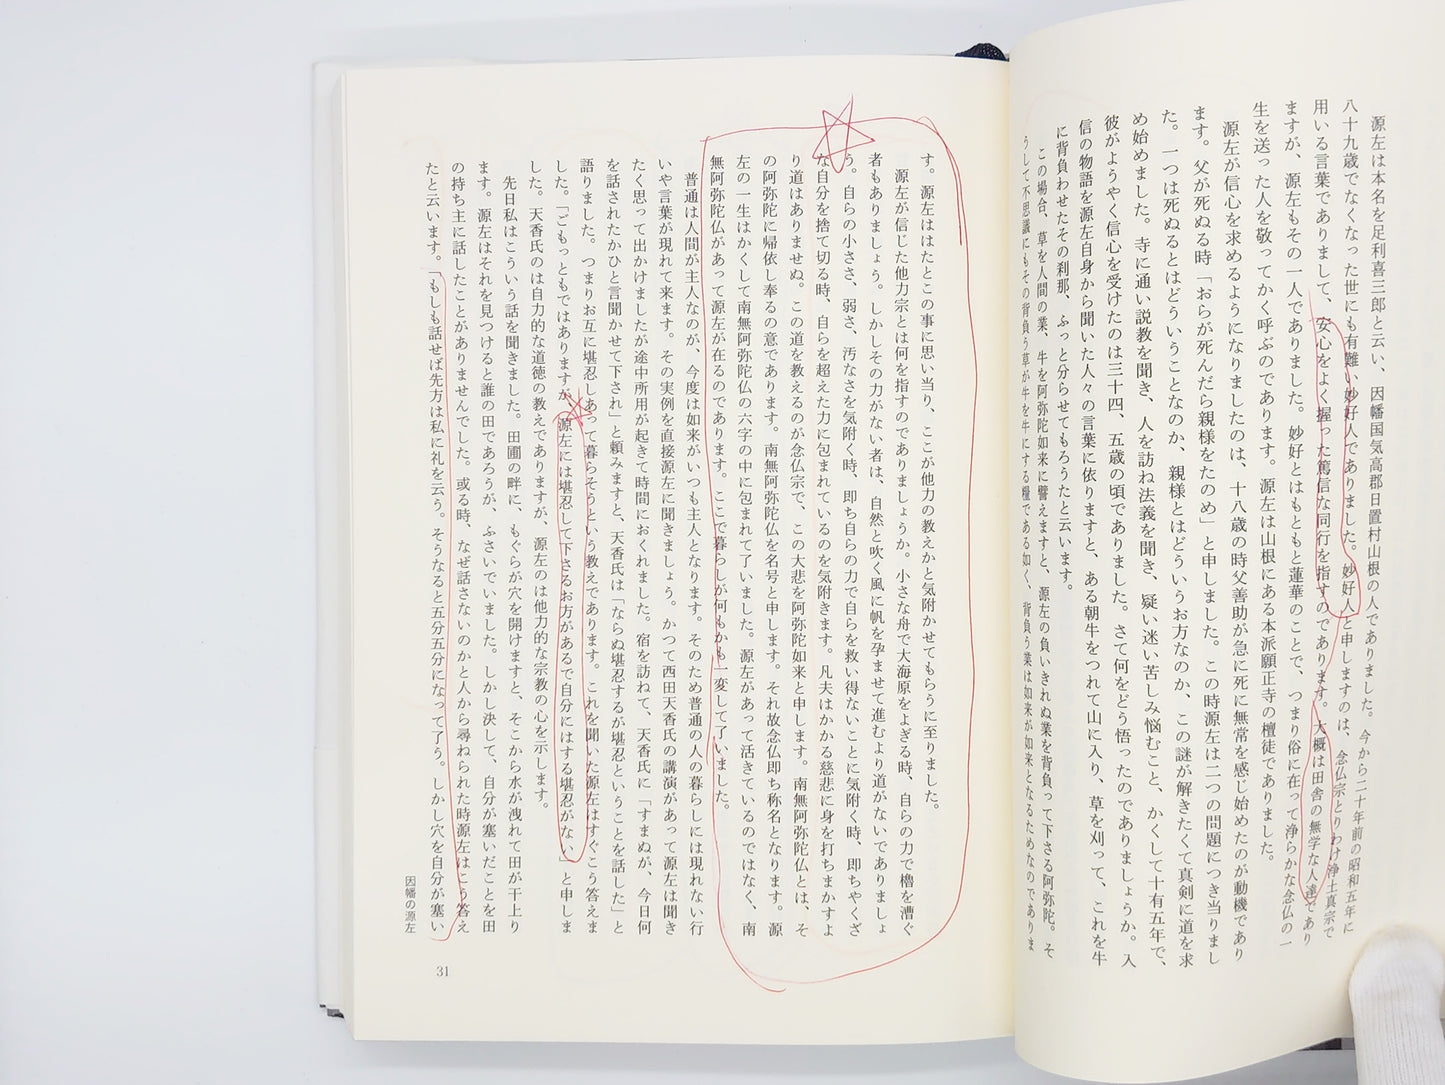 源左は本名を足利喜三郎と云い、因幡国気高郡日置村山根の人でありました。今から二十年前の昭和五年に
八十九歳でなくなった世にも有難い妙好人でありました。妙好人と申しますのは、念仏宗とりわけ浄土真宗で
用いる言葉でありまして、安心をよく握った篤信な同行を指すのであります。大概は田舎の無学な人達であり
ますが、源左もその一人でありました。妙好とはもともと蓮華のことで、つまり俗に在って浄らかな念仏の一
生を送った人を敬ってかく呼ぶのであります。源左は山根にある本派願正寺の檀徒でありました。
源左が信心を求めるようになりましたのは、十八歳の時父善助が急に死に無常を感じ始めたのが動機であり
ます。父が死ぬる時「おらが死んだら親様をたのめ」と申しました。この時源左は二つの問題につき当りまし
た。一つは死ぬるとはどういうことなのか、親様とはどういうお方なのか、この謎が解きたくて真剣に道を求
め始めました。寺に通い説教を聞き、人を訪ね法義を聞き、疑い迷い苦しみ悩むこと、かくして十有五年で、
彼がようやく信心を受けたのは三十四、五歳の頃でありました。さて何をどう悟ったのでありましょうか。入
信の物語を源左自身から聞いた人々の言葉に依りますと、ある朝牛をつれて山に入り、草を刈って、これを牛
に背負わせたその刹那、ふっと分らせてもろうたと云います。
この場合、草を人間の業、牛を阿弥陀如来に譬えますと、源左の負いきれぬ業を背負って下さる阿弥陀。そ
うして不思議にもその背負う草が牛を牛にする糧である如く、背負う業は如来が如来となるためなのでありま
す。源左ははたとこの事に思い当り、ここが他力の教えかと気附かせてもらうに至りました。
源左が信じた他力宗とは何を指すのでありましょうか。小さな舟で大海原をよぎる時、自らの力で櫓を漕ぐ
者もありましょう。しかしその力がない者は、自然と吹く風に帆を孕ませて進むより道がないでありましょ
う。自らの小ささ、弱さ、汚なさを気附く時、即ち自らの力で自らを救い得ないことに気附く時、即ちやくざ
な自分を捨て切る時、自らを超えた力に包まれているのを気附きます。凡夫はかかる慈悲に身を打ちまかすよ
り道はありませぬ。この道を教えるのが念仏宗で、この大悲を阿弥陀如来と申します。南無阿弥陀仏とは、そ
の阿弥陀に帰依し奉るの意であります。南無阿弥陀仏を名号と申します。それ故念仏即ち称名となります。源
左の一生はかくして南無阿弥陀仏の六字の中に包まれて了いました。源左があって活きているのではなく、南
無阿弥陀仏があって源左が在るのであります。ここで暮らしが何もかも一変して了いました。
普通は人間が主人なのが、今度は如来がいつも主人となります。そのため普通の人の暮らしには現れない行
いや言葉が現れて来ます。その実例を直接源左に聞きましょう。かつて西田天香氏の講演があって源左は聞き
たく思って出かけましたが途中所用が起きて時間におくれました。宿を訪ねて、天香氏に「すまぬが、今日何
を話されたかひと言聞かせて下され」と頼みますと、天香氏は「ならぬ堪忍するが堪忍ということを話した」と
語りました。つまりお互に堪忍しあって暮らそうという教えであります。これを聞いた源左はすぐこう答えま
した。「ごもっともではありますが、源左には堪忍して下さるお方があるで自分にはする堪忍がない」と申しま
した。天香氏のは自力的な道徳の教えでありますが、源左のは他力的な宗教の心を示します。
先日私はこういう話を聞きました。田圃の畔に、もぐらが穴を開けますと、そこから水が洩れて田が干上り
ます。源左はそれを見つけると誰の田であろうが、ふさいでいました。しかし決して、自分が塞いだことを田
の持ち主に話したことがありませんでした。或る時、なぜ話さないのかと人から尋ねられた時源左はこう答え
たと云います。「もしも話せば先方は私に礼を云う。そうなると五分五分になって了う。しかし穴を自分が塞い
因幡の源左
31